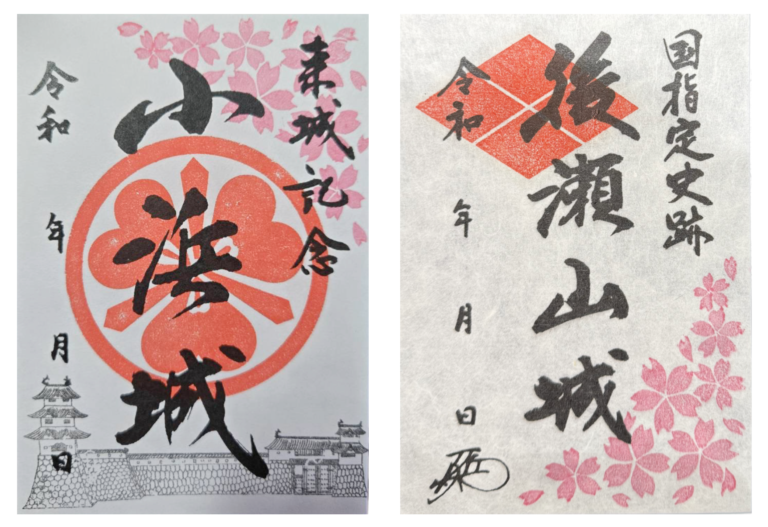 来城記念
小浜城
令和 年 月 日
国指定史跡
後瀬山城
令和 年 月 日